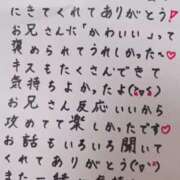 にきてくれてありがとう!
お兄さんに「かわいい」って
褒められてうれしかった〜♡
キスもたくさんできて
気持ちよかったよ(ˊ˘ˋ)
お兄さん反応いいから
攻めてて楽しかったです♡
お話もいろいろ聞いて
くれてありがとう(ˊᵕˋ)
また一緒に